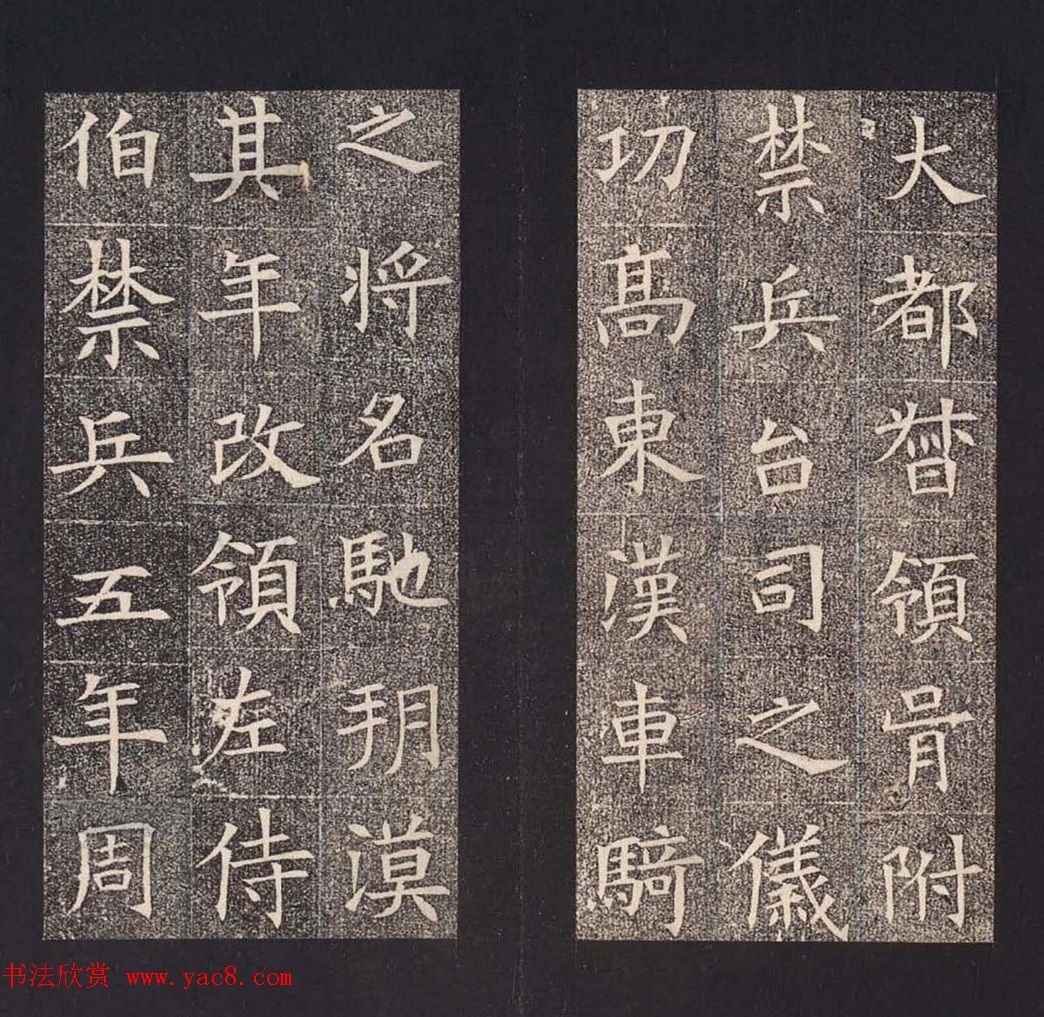 大都督領胥附
禁兵台司之儀
功高東漢車騎
之將名馳朔漠
其年改領左侍
伯禁兵五年周
书法欣赏 www.yac8.com